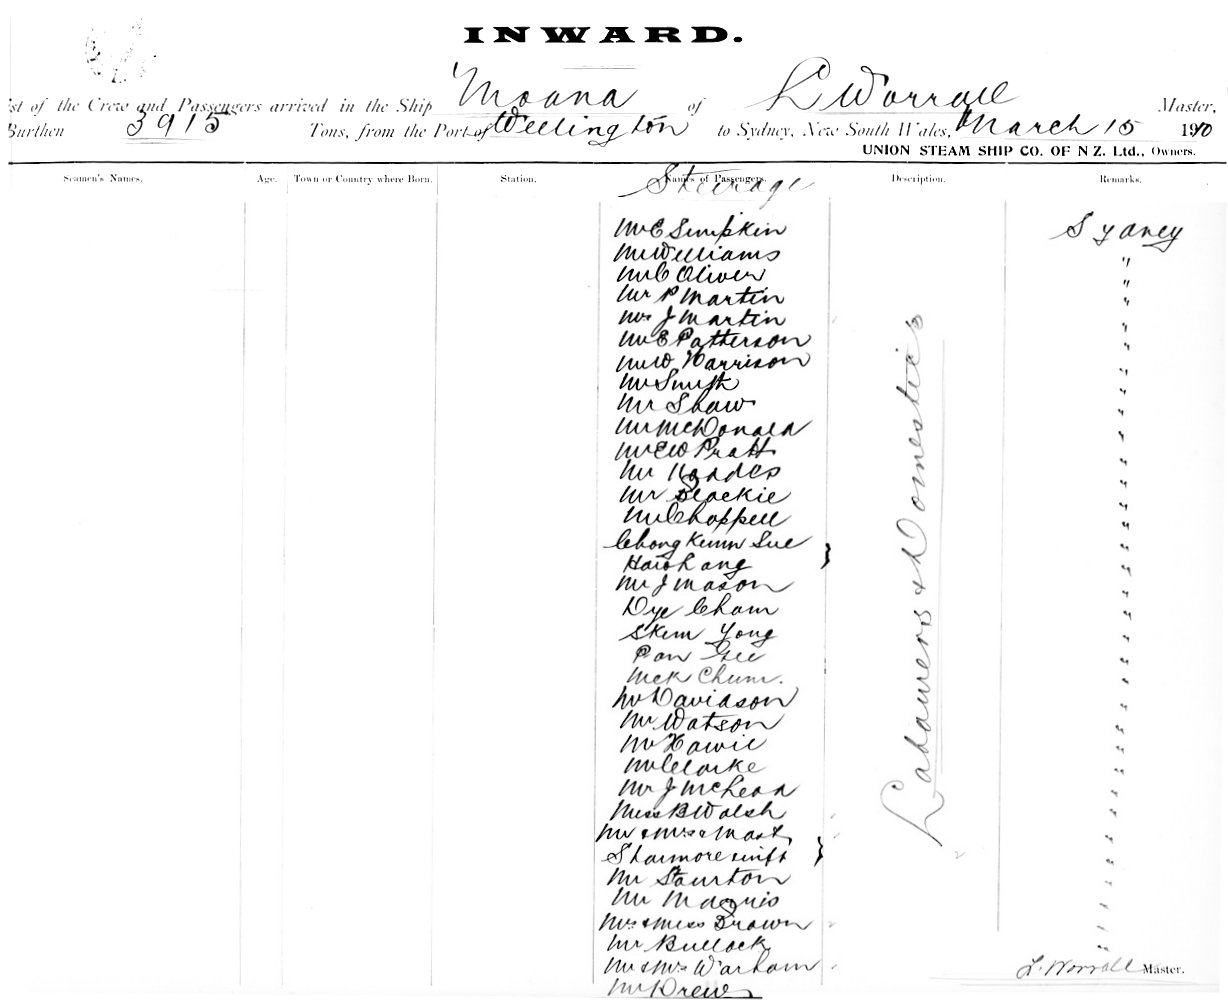 INWARD.
ist of the Crew and Passengers arrived in the Ship Moana of L Worrall Master,
Burthen 3915 Tons, from the Port of Wellington to Sydney, New South Wales, March 15 1910
UNION STEAM SHIP CO. OF N Z. Ltd., Owners.
Seamen's Names. Age. Town or Country where Born. Station. Names of Passengers. Description. Remarks.
Steerage
Mr E Simpkin Sydney
Mr Williams "
Mr C Oliver "
Mr P Martin "
Mrs J Martin "
Mr E Patterson "
Mr W Harrison "
Mr Smith "
Mr Shaw "
Mr McDonald "
Mr E W Pratt "
Mr "
Mr Blackie "
Mr Chappell "
Chong Kumn Sue }
"
Mr J Mason "
Dye Cham "
Skem Yong "
Pan Gee "
Mck Chum. "
Mr Davidson "
Mr Watson "
Mr Howie "
Mr Clarke "
Mr J McLean "
Miss B Walsh "
Mr & Mrs Mast "
}
Mr Stourton "
Mr Magnis "
Mrs & Miss Brown "
Mr Bullock "
Mr & Mrs Warham
Mr Drew
Labourers & Domestics
L. Worrall Master.